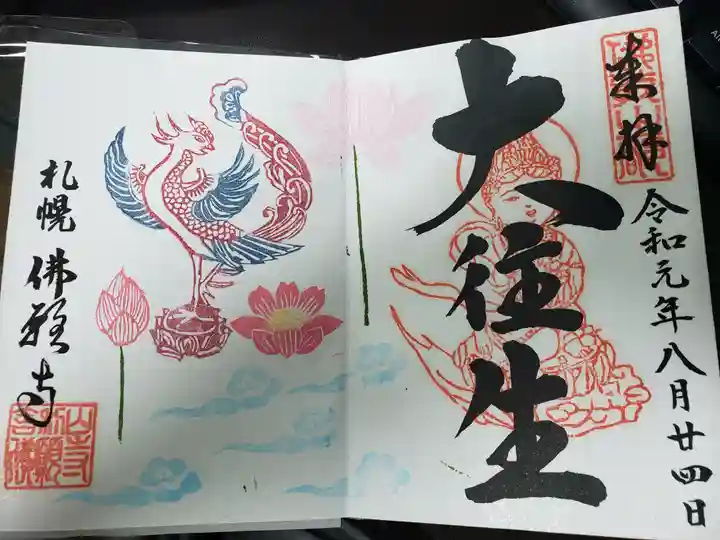 来拝
令和元年八月廿四日
大往生
札幌 佛願寺